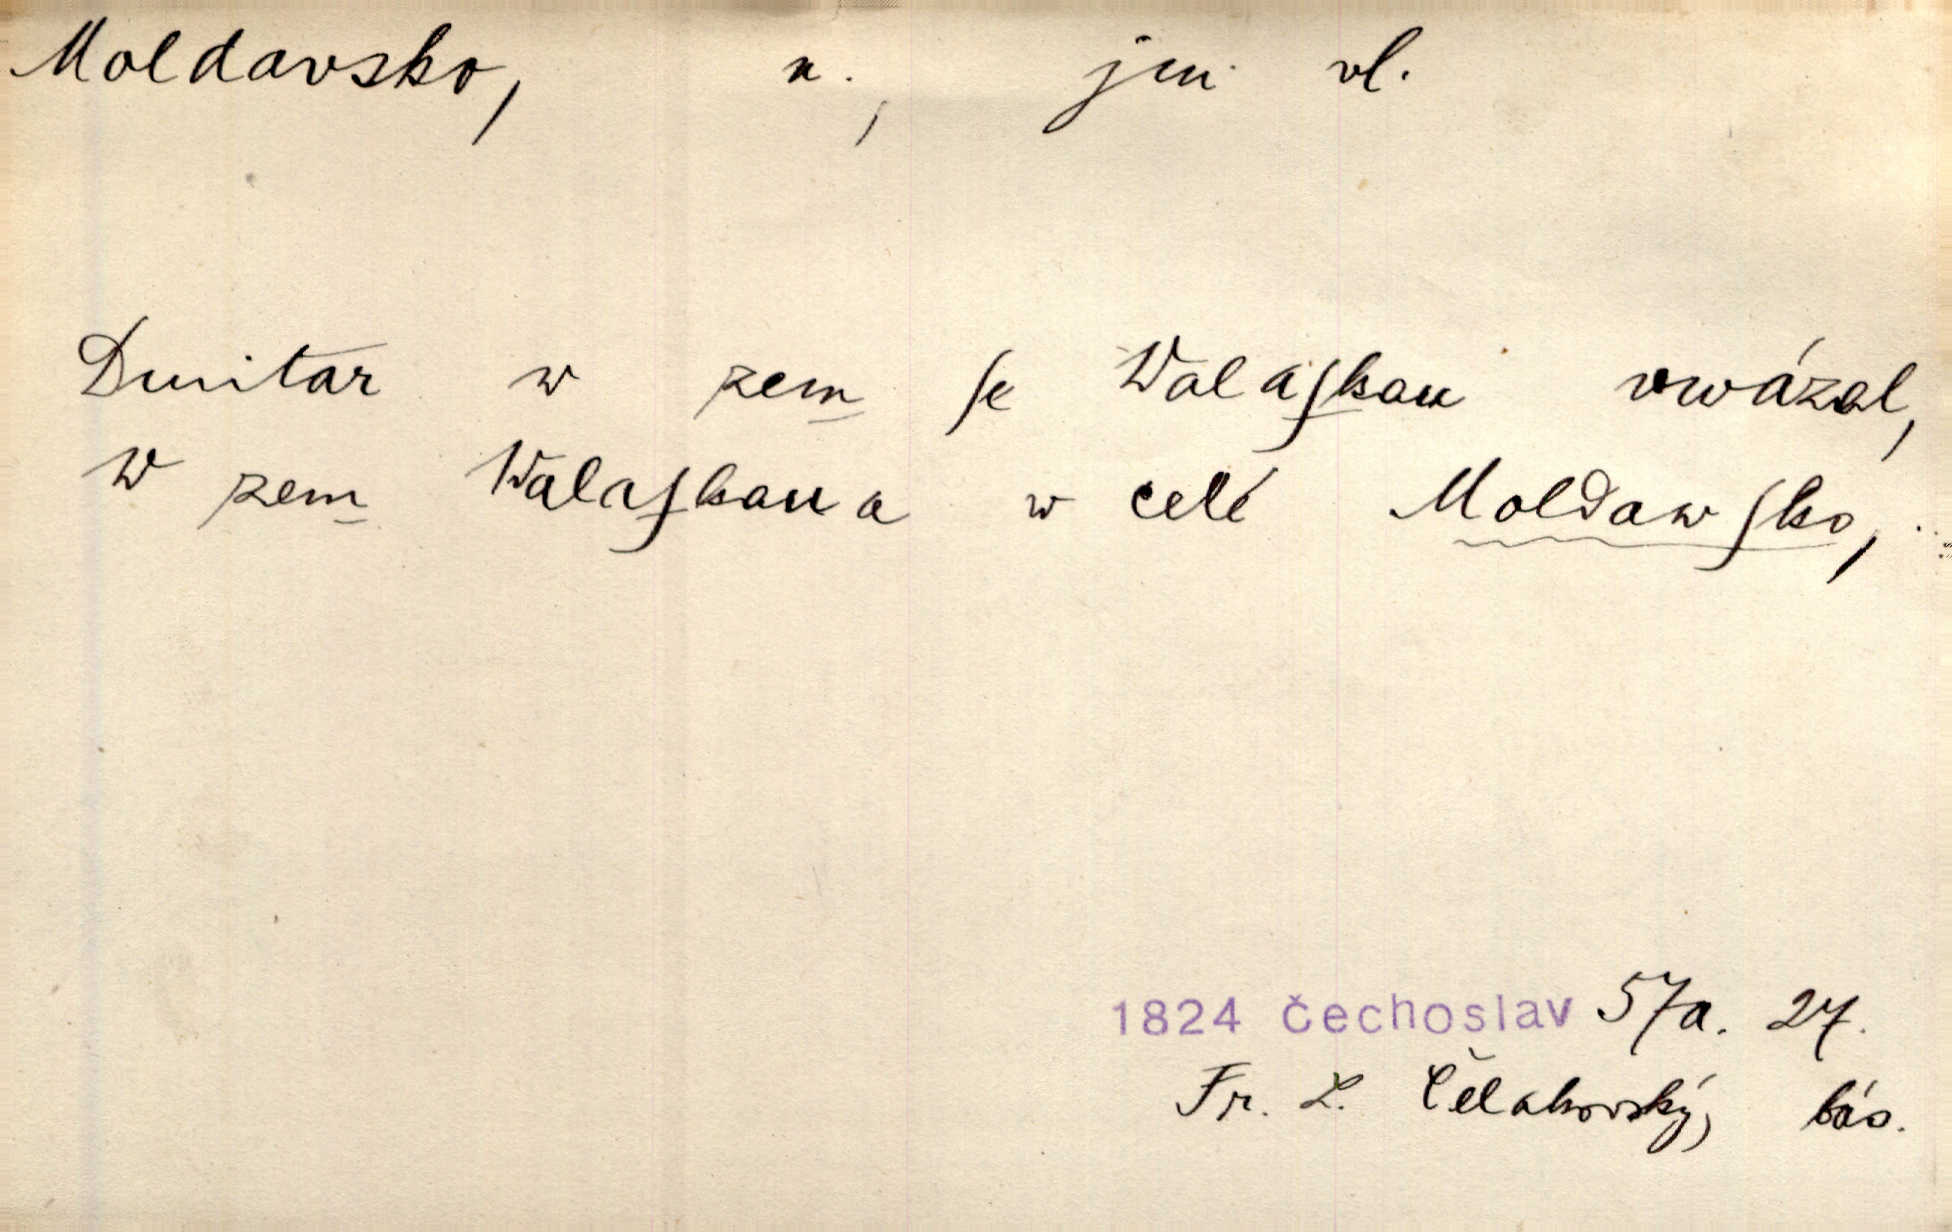 Moldavsko, n., jm. vl.
Dmitar w zem ſe Walaſkau vwázal,
W zem Walaſkau a w celé Moldawſko, ..
1824 Čechoslav 57a. 27.
Fr. L. Čelakovský, bás.